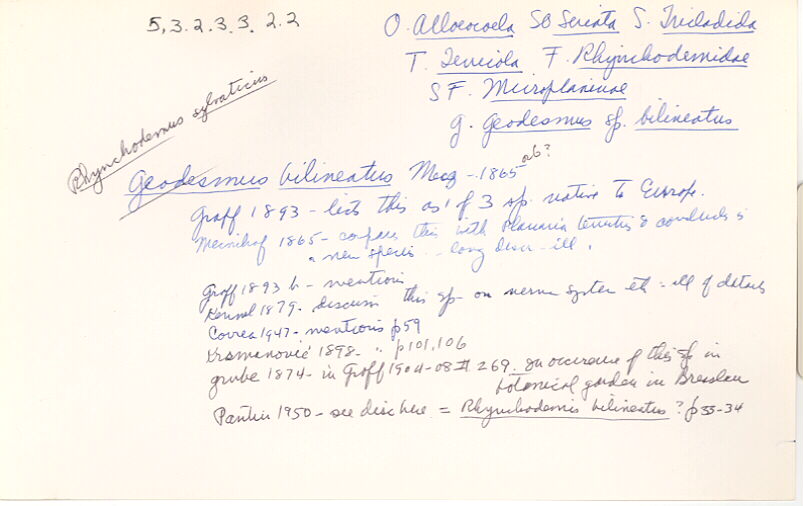 5,3.2.3.3. 2.2
O. Alloeocoela SO Seriata S. Tricladida
T. Terricola F. Rhynchodemidae
SF. Microplaninae
g. Geodesmus sp. bilineatus
Rhynchodemus sylvaticus
Geodesmus bilineatus Mecz - 1865 or 6?
Graff 1893 - lists this as 1 of 3 sp. native to Europe.
1865 - compares this with Planaria terrestris & concluds is
a new species - long discr - ill.
Graff 1893 b - mentions
Kennel 1879 - discusses this sp - on nerve system etc - ill of details
Correa 1947 - mentions p59
1898 - " p101,106
Grube 1874 - in Graff 1904-08 # 269. on occurence of this sp in
botanical garden in Breslau
Pantin 1950 - see disc here = Rhynchodemis bilineatus? p 33-34